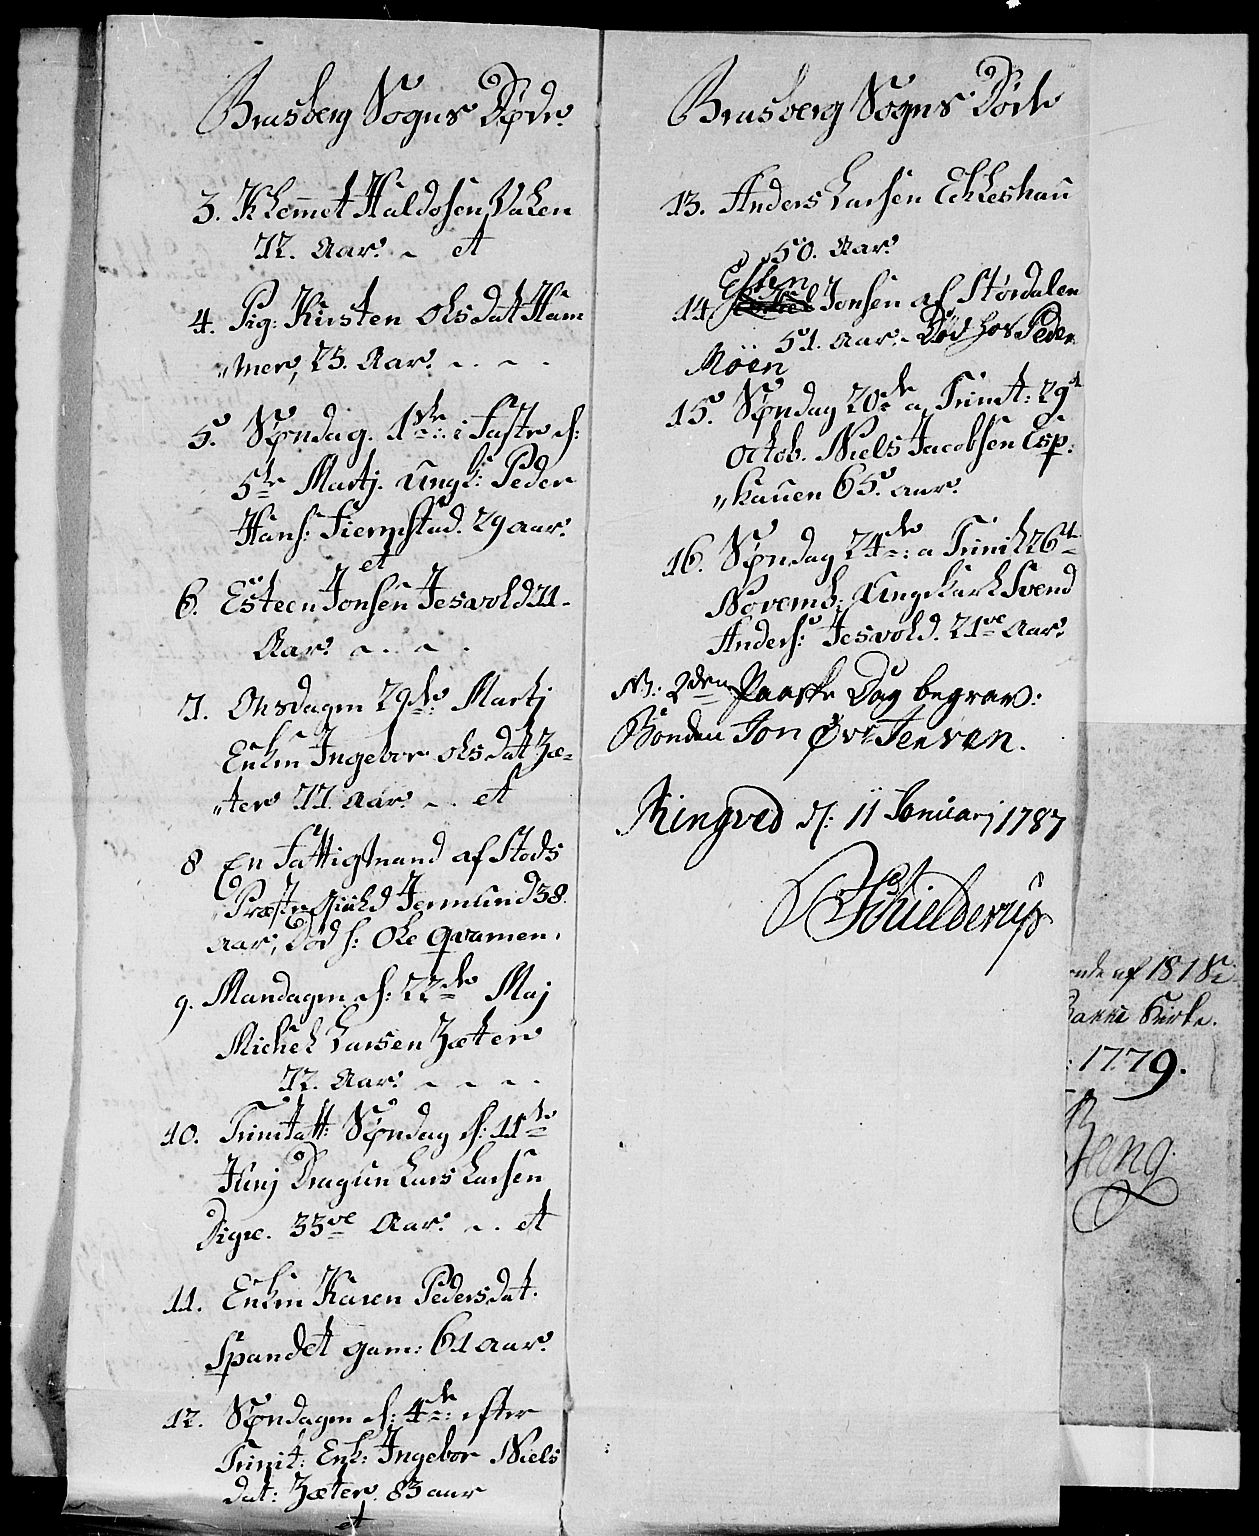 Brusberg Sogns Døde
3. Klemet Haldosen Vaken
72. Aar. et
4. Pig: Kirsten Olsdat Ham
"mer, 23. Aar.
5. Søndag. 1ste: i Faste d:
5te Martj. Ungk: Peder
Hans: Fiermstad. 29 aar.
et
6. Esteen Jonsen Jesvold 71
Aar.
7. Onsdagen 29de Martj
Enken Ingebor Olsdat Zæ-
"ter 77 Aar et
8 En Fattig Mand af Stods
Præste Gield Jermund 38.
aar, Død h: Ole Qvamen.
9. Mandagen d: 22de Maj
Michel Larsen Zæter
72. Aar.
10. Trinitat: Søndag d: 11te
Junj Dragun Lars Larsen
Digre. 33ve Aar. et
11. Enken Karen Pedersdat.
Spandet gam: 61 aar.
12. Søndagen d: 4de: efter
Trinit: Enk: Ingebor Niels
dat: Zæter. 83 aar
et
Brusberg Sogns Døde
13. Anders Larsen Ekleshau
50. Aar.
Esten
14. Jonsen af Størdalen
51. Aar. Død hos Peder
Möen
15. Søndag 20de a Trinit: 29d
Octob. Niels Jacobsen Esp:
"hauen 65. aar.
16. Søndag 24de: a Trinit 26d
Novemb: Ungekarl Svend
Anders: Jesvold. 21ve Aar.
NB: 2den Paaske Dag begrav:
Bonden Jon Øvr Jenvæn.
Ringved d: 11 Januarj 1787
Schielderup
af 1818
Bakke Kirke.
1779.
Bang